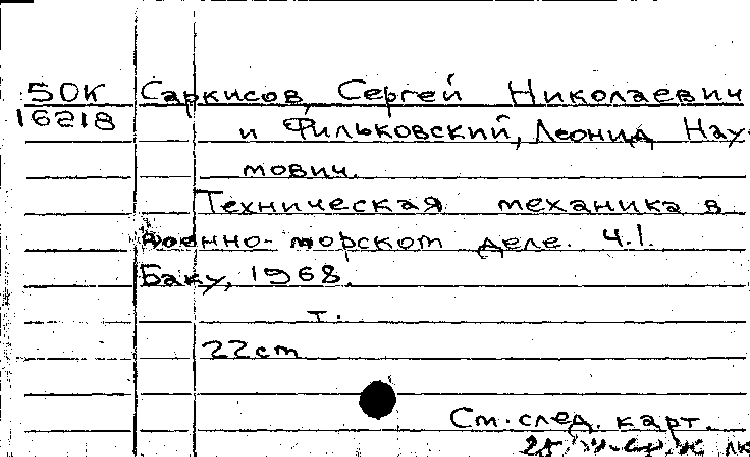 50К Саркисов, Сергей Николаевич
16218 и Фильковский, Леонид Нау-
мович.
Техническая механика в
военно-морском деле. Ч.1.
Баку, 1968.
т.
22 cm
См. след. карт.